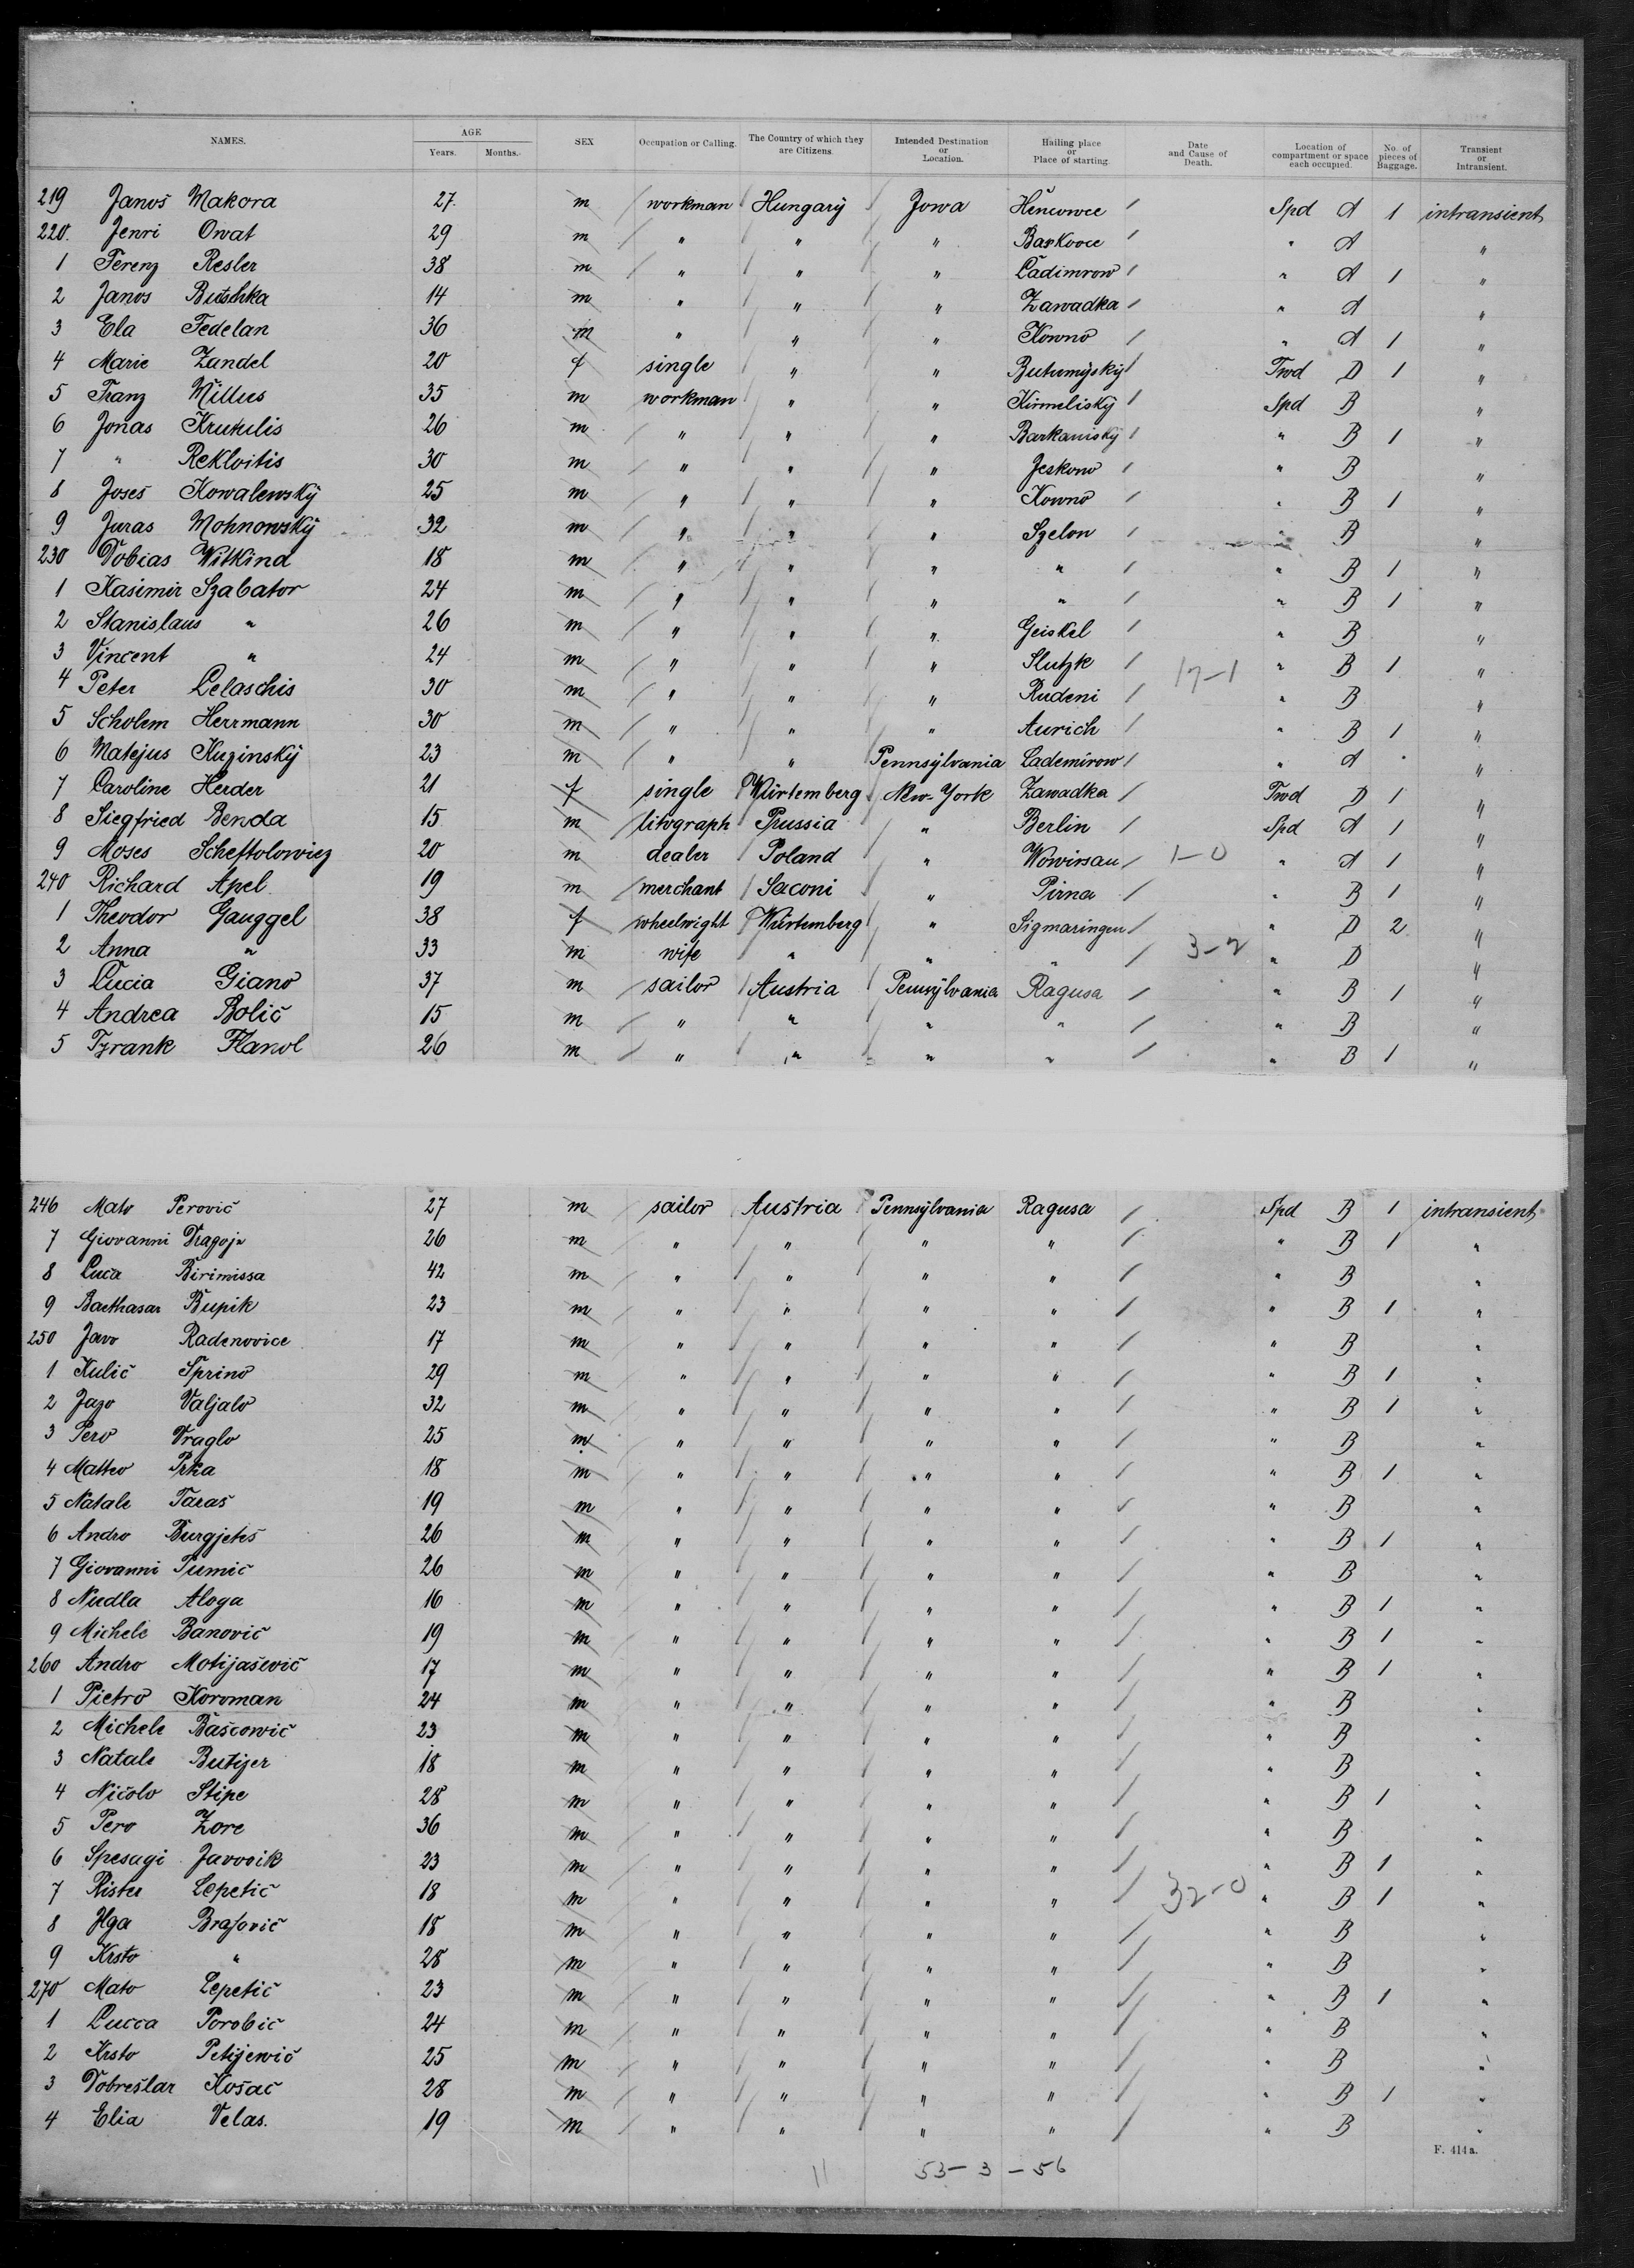 NAMES. AGE Years. Months. SEX Occupation or Calling. The Country of which they are Citizens. Intended Destination or Location. Hailing place or Place of starting. Date and Cause of Death. Location of compartment or space each occupied. No. of pieces of Baggage. Transient or Intransient.
219 Janos Makora 27 m workman Hungary Jowa Hencowce Spd A 1 intransient
220. Jenri Owat 29 m " " " Baskovce " A "
1 Ferenz Resler 38 m " " " Ladimrow " A 1 "
2 Janos Butschka 14 m " " " Zawadka " A "
3 Ela Fedelan 36 m " " " Kowno " A 1 "
4 Marie Zandel 20 f single " " Butumysky Twd D 1 "
5 Franz Millus 35 m workman " " Kirmelisky Spd B "
6 Jonas Krukulis 26 m " " " Barkanisky " B 1 "
7 " Rekloitis 30 m " " " Jeskono " B "
8 Joses Kowalewsky 25 m " " " Kowno " B 1 "
9 Juras Mohnowsky 32 m " " " Szelon " B "
230 Tobias Witkind 18 m " " " " " B 1 "
1 Kasimir Szabator 24 m " " " " " B 1 "
2 Stanislaus " 26 m " " " Geiskel " B "
3 Vincent " 24 m " " " Slutzk 17-1 " B 1 "
4 Peter Lelaschis 30 m " " " Rudeni " B "
5 Scholem Herrmann 30 m " " " Aurich " B 1 "
6 Matejus Kuzinsky 23 m " " Pennsylvania Lademirow " A "
7 Caroline Herder 21 f single Würtemberg New-York Zawadka Twd D 1 "
8 Siegfried Benda 15 m litograph Prussia " Berlin Spd A 1 "
9 Moses Scheftolowicz 20 m dealer Poland " Wowirsau 1-0 " A 1 "
240 Richard Apel 19 m merchant Saconi " Pirna " B 1 "
1 Theodor Gauggel 38 f wheelwight Würtemberg " Sigmaringen " D 2 "
2 Anna " 33 m wife " " " 3-2 " D "
3 Lucia Giano 37 m sailor Austria Pennsylvania Ragusa " B 1 "
4 Andrea Bolič 15 m " " " " " B "
5 Frank Hanol 26 m " " " " " B 1 "
246 Mato Perovič 27 m sailor Austria Pennsylvania Ragusa Spd B 1 intransient
7 Giovanni Dragoja 26 m " " " " " B 1 "
8 Luca Birimissa 42 m " " " " " B "
9 Balthasar Bupik 23 m " " " " " B 1 "
250 Javo Radenovice 17 m " " " " " B "
1 Kulič Sprino 29 m " " " " " B 1 "
2 Jazo Valjalo 32 m " " " " " B 1 "
3 Pero Draglo 25 m " " " " " B "
4 Matteo Prka 18 m " " " " " B 1 "
5 Natale Taras 19 m " " " " " B "
6 Andro Burgjetes 26 m " " " " " B 1 "
7 Giovanni Tumič 26 m " " " " " B "
8 Nudla Aloga 16 m " " " " " B 1 "
9 Michele Banovič 19 m " " " " " B 1 "
260 Andro Motijaševič 17 m " " " " " B 1 "
1 Pietro Koroman 24 m " " " " " B "
2 Michele Bašcowič 23 m " " " " " B "
3 Natale Butijer 18 m " " " " " B "
4 Nicolo Stipe 28 m " " " " " B 1 "
5 Pero Zore 36 m " " " " " B "
6 Spesagi Javovik 23 m " " " " " B 1 "
7 Rister Lepetič 18 m " " " " 32-0 " B 1 "
8 Ilga Brajovič 18 m " " " " " B "
9 Krsto " 28 m " " " " " B "
270 Mato Lepetič 23 m " " " " " B 1 "
1 Lucca Porobič 24 m " " " " " B "
2 Krsto Petijewič 25 m " " " " " B "
3 Dobreslar Košač 28 m " " " " " B 1 "
4 Elia Velas. 19 m " " " " " B "
F. 414 a.
11 53-3-56